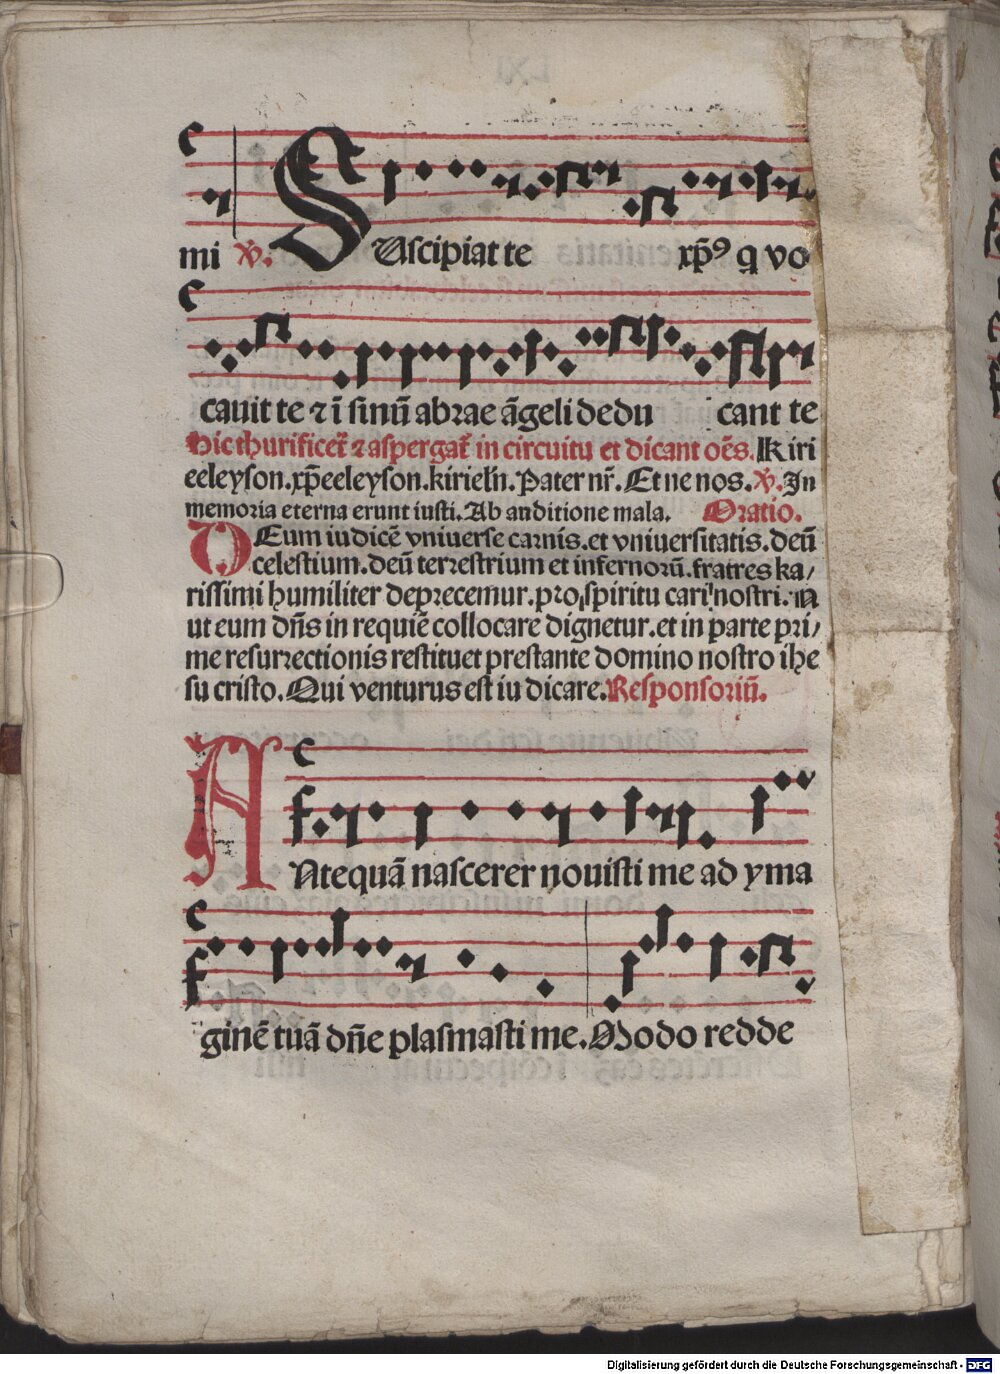 mi v̄. SUscipiat te xp̄ꝰ q vo
cauit te ⁊ ī sinū abrae āgeli dedu cant te
Hic thurificet̄ ⁊ aspergat̄ in circuitu et dicant oēs. Kiri
eeleyson. xp̄eeleyson. kirieln̄. Pater nr̄. Et ne nos. v̄. In
memoria eterna erunt iusti. Ab anditione mala. Oratio.
DEum iudicē vniuerse carnis. et vniuersitatis. deū
celestium. deū terrestrium et infernorū. fratres ka/
rissimi humiliter deprecemur. pro spiritu cari nostri. N
ut eum dn̄s in requiē collocare dignetur. et in parte pri/
me resurrectionis restituet prestante domino nostro ihe
su cristo. Qui venturus est iudicare. Responsoriū.
ANtequā nascerer nouisti me ad yma
ginē tuā dn̄e plasmasti me. Modo redde
Digitalisierung gefördert durch die Deutsche Forschungsgemeinschaft - DFG